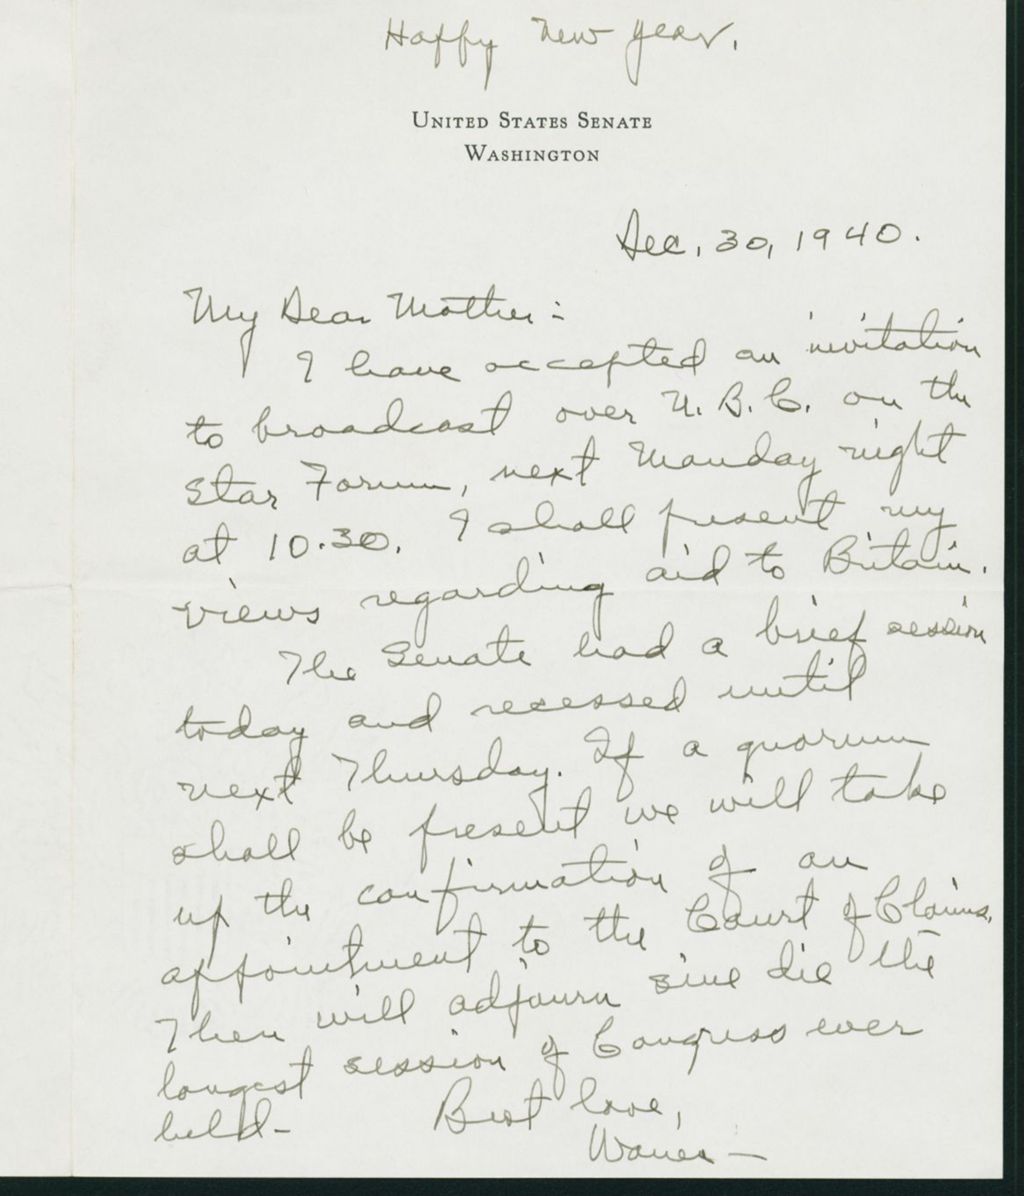 Happy New Year.
UNITED STATES SENATE
WASHINGTON
Dec. 30, 1940.
My Dear Mother:-
I have accepted an invitation
to broadcast over N.B.C. on the
Star Forum, next Monday night
at 10.30. I shall present my
views regarding aid to Britain.
The Senate had a brief session
today and recessed until
next Thursday. If a quorum
shall be present we will take
up the confirmation of an
appointment to the Court of Claims.
Then will adjourn sine die the
longest session of Congress ever
held- Best love,